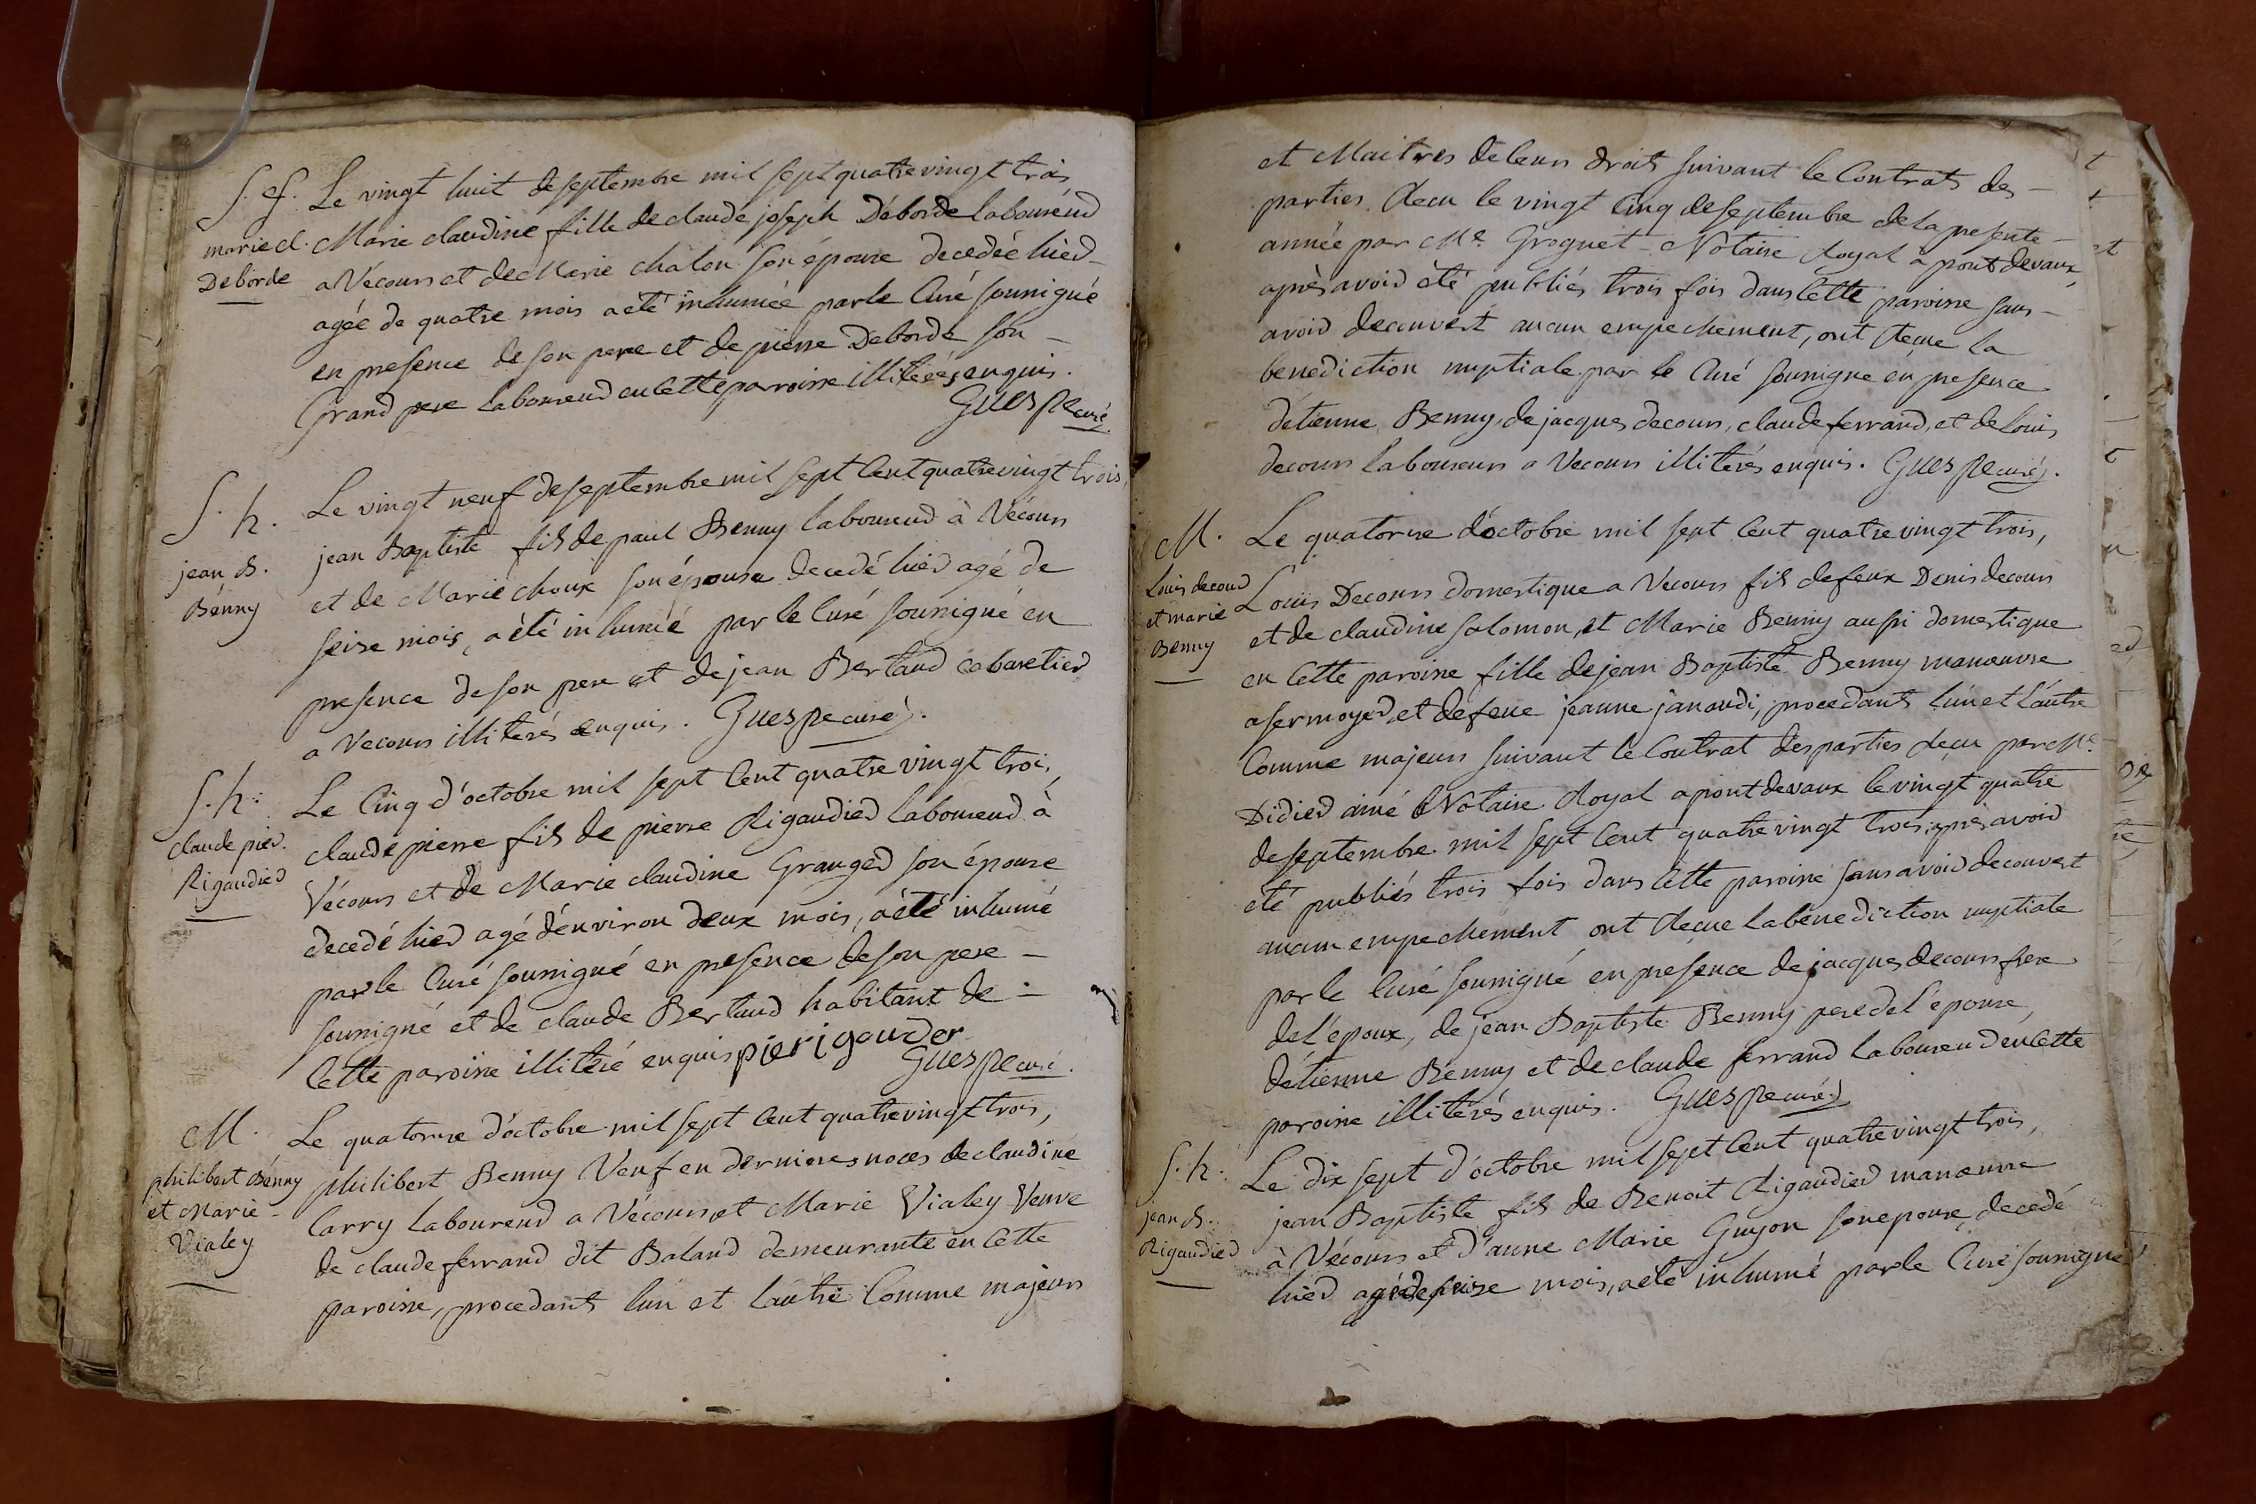 S. f.
marie cl.
Deborde
Le vingt huit de septembre mil sept quatre vingt trois
Marie claudine fille de claude joseph Déborde laboureur
a Vécours et de Marie chalon son épouse decedée hier
agée de quatre mois a été inhumée par le Curé soussigné
en presence de son pere et de pierre Deborde son
Grand pere laboureur en Cette paroisse illiterés enquis.
Guespe curé.
S. h.
jean B.
Bénny
Le vingt neuf de septembre mil sept Cent quatre vingt trois,
jean Baptiste fils de paul Benny laboureur à Vécours
et de Marie choux son épouse decedé hier agé de
seise mois, a été inhumé par le Curé soussigné en
presence de son pere et de jean Bertaud cabaretier
a Vecours illiterés enquis. Guespe curé.
S. h.
claude pier.
Rigaudier
Le Cinq d'octobre mil sept Cent quatre vingt trois,
claude pierre fils de pierre Rigaudier laboureur à
Vécours et de Marie claudine Granger son épouse
decedé hier agé d'environ deux mois, a été inhumé
par le Curé soussigné en presence de son pere
soussigné et de claude Bertaud habitant de
Cette paroisse illiteré enquis pierigouder
Guespe curé.
M.
philibert Bénny
et Marie
Vialey
Le quatorze d'octobre mil sept Cent quatre vingt trois,
philibert Benny Veuf en dernieres noces de claudine
Carry laboureur a Vécours, et Marie Vialey Veuve
de claude ferrand dit Baland demeurante en Cette
paroisse, procedants l'un et l'autre Comme majeurs
et Maitres de leurs droits suivant le Contrat des
parties Recu le vingt Cinq de septembre de la presente
année par Me. Groguet Notaire Royal a pont de vaux,
après avoir été publiés trois fois dans Cette paroisse sans
avoir decouvert aucun empechement, ont Recue la
benediction nuptiale par le Curé soussigné en presence
d'etienne Benny, de jacques decours, claude ferrand, et de Louis
decours laboureurs a Vecours illiterés enquis. Guespe curé.
M.
Louis decour
et marie
Benny
Le quatorze d'octobre mil sept Cent quatre vingt trois,
Louis Decours domestique a Vecours fils de feux Denis decours
et de claudine salomon, et Marie Benny aussi domestique
en Cette paroisse fille de jean Baptiste Benny manœuvre
a sermoyer, et de feue jeanne janaudi, procedants l'un et l'autre
Comme majeurs suivant le Contrat des parties Recu par Me.
Didier ainé Notaire Royal a pont de vaux le vingt quatre
de septembre mil sept Cent quatre vingt trois, après avoir
été publiés trois fois dans Cette paroisse sans avoir decouvert
aucun empechement ont Recue la bénediction nuptiale
par le Curé soussigné en presence de jacques decours frere
de l'epoux, de jean Baptiste Benny pere de l'epouse,
d'etienne Benny et de claude ferrand laboureur en Cette
paroisse illiterés enquis. Guespe curé.
S. h.
jean B.
Rigaudier
Le dix sept d'octobre mil sept Cent quatre vingt trois,
jean Baptiste fils de Benoit Rigaudier manœuvre
à Vécours et d'anne Marie Guyon son epouse, decedé
hier agé de seise mois, a été inhumé par le Curé soussigné